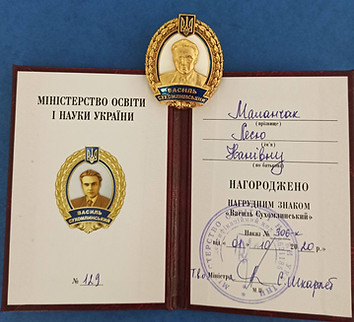 ВАСИЛЬ
СУХОМЛИНСЬКИЙ
МІНІСТЕРСТВО ОСВІТИ
І НАУКИ УКРАЇНИ
ВАСИЛЬ
СУХОМЛИНСЬКИЙ
№ 129
Маланчак
(прізвище)
Лесю
(ім'я)
Іванівну
(по батькові)
НАГОРОДЖЕНО
НАГРУДНИМ ЗНАКОМ
«Василь Сухомлинський»
Наказ № 306-к
від « 01 » 10 2020 р.
Т.в.о Міністр С. Шкарлет
М.П.